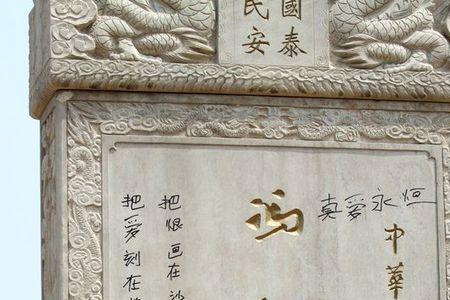 國泰
民安
真爱永恒
中華
把恨画在沙
把爱刻在